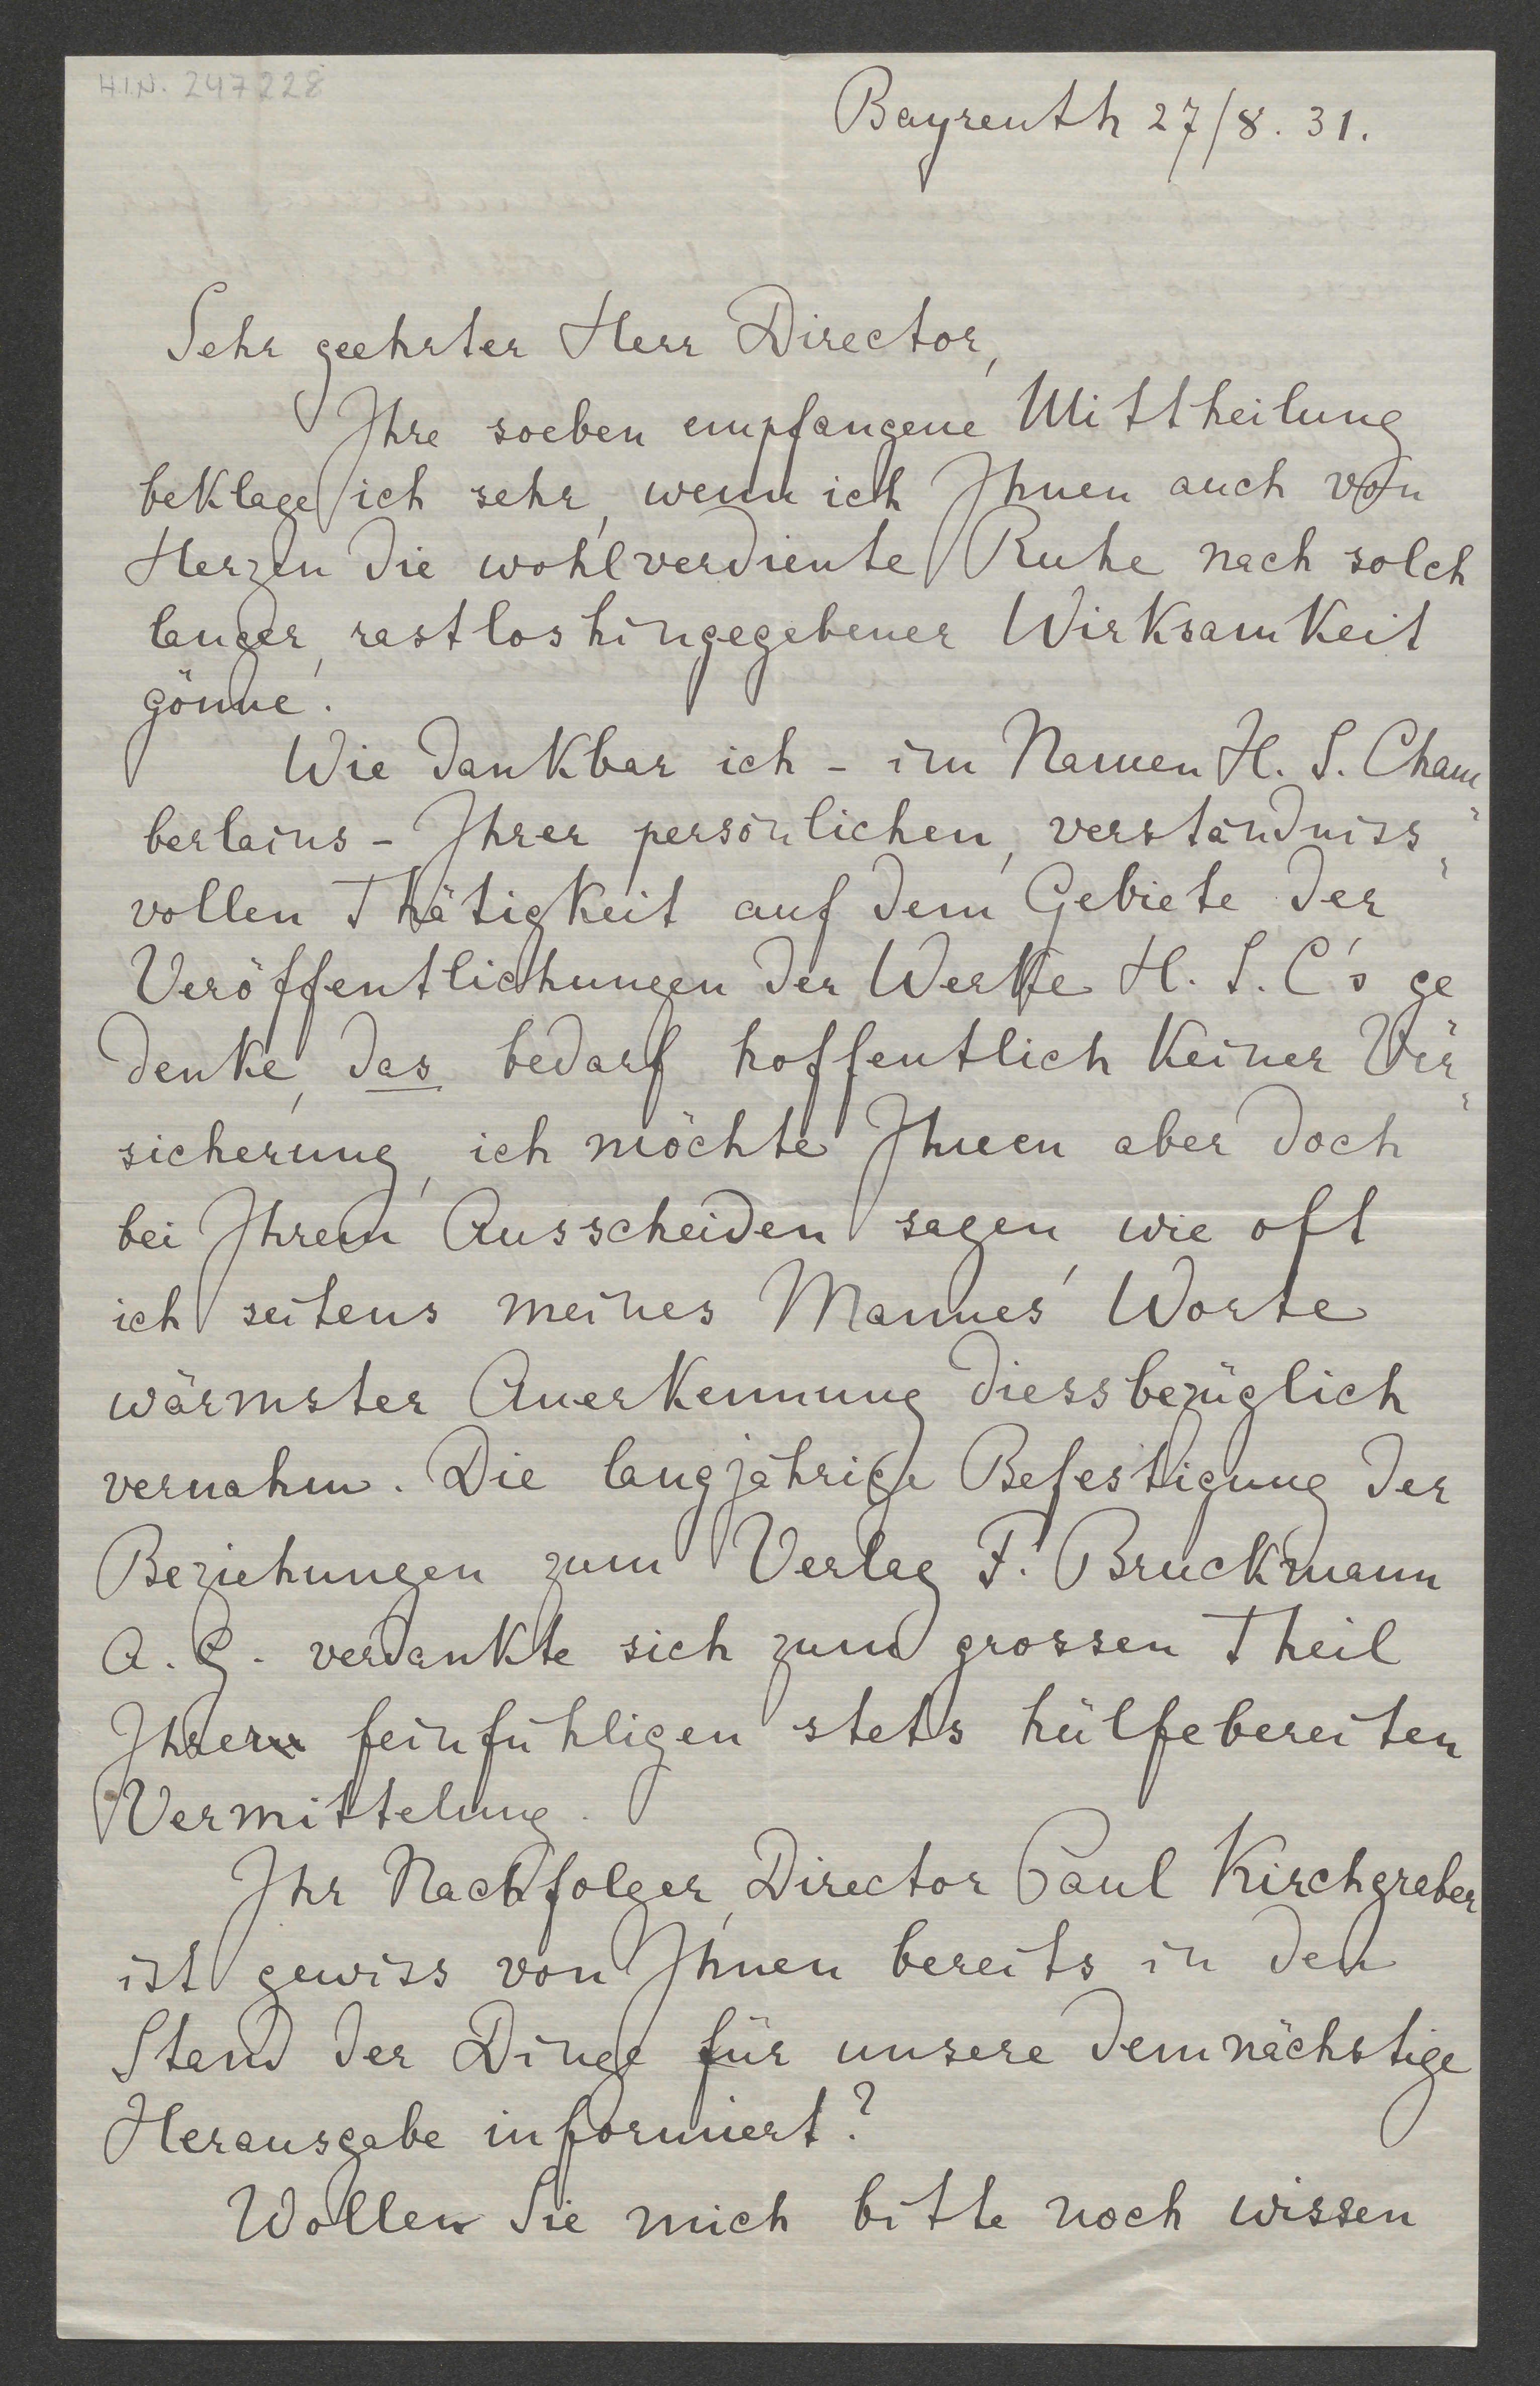 H.I.N. 247228
Bayreuth 27/8. 31.
Sehr geehrter Herr Director,
Ihre soeben empfangene Mittheilung
beklage ich sehr, wenn ich Ihnen auch von
Herzen die wohlverdiente Ruhe nach solch
langer, rastloshingegebener Wirksamkeit
gönne.
Wie dankbar ich - im Namen H. S. Cham-
berlains - Ihrer persönlichen, verständniss-
vollen Thätigkeit auf dem Gebiete der
Veröffentlichungen der Werke H. S. C's ge
denke, das bedarf hoffentlich keiner Ver-
sicherung, ich möchte Ihnen aber doch
bei Ihrem Ausscheiden sagen, wie oft
ich seitens meines Mannes Worte
wärmster Anerkennung diessbezüglich
vernahm. Die langjährige Befestigung der
Beziehungen zum Verlag F. Bruckmann
A. G. verdankte sich zum grossen Theil
Ihrer feinfühligen stets hülfebereiten
Vermittelung.
Ihr Nachfolger, Director Paul Kirchgraber
ist gewiss von Ihnen bereits in den
Stand der Dinge für unsere demnächstige
Herausgabe informiert?
Wollen Sie mich bitte noch wissen